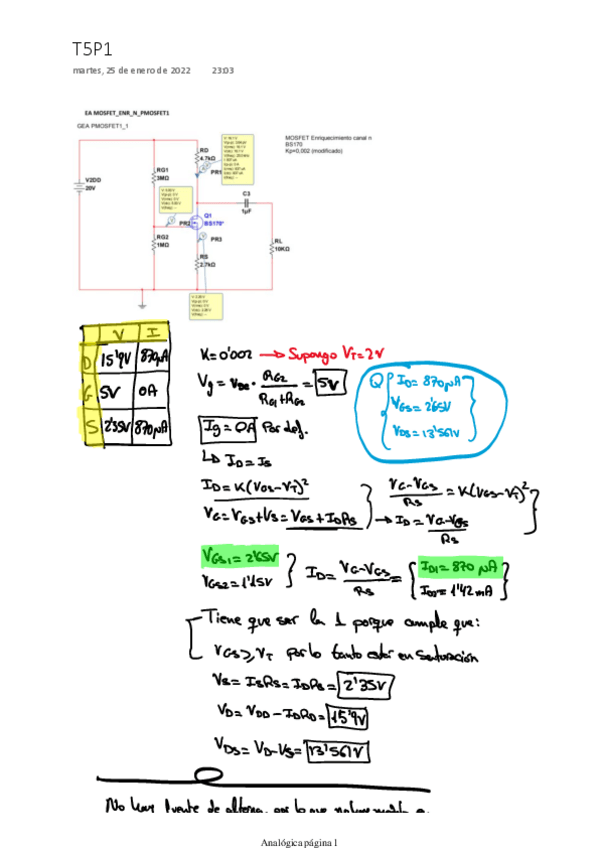 T5P1
martes, 25 de enero de 2022 23:03
EA MOSFET_ENR_N_PMOSFET1
GEA PMOSFET1_1
MOSFET Enriquecimiento canal n
BS170
Kp=0,002 (modificado)
V2DD
20V
RG1
3MΩ
RD
4.7kΩ
PR1
C3
1µF
Q1
BS170*
PR2
RG2
1MΩ
PR3
RS
2.7kΩ
RL
10KΩ
V I
D 15'9V 870µA
G 5V 0A
S 2'35V 870µA
K=0'002 → Supongo VT=2V
Vg = VDD · RG2 / RG1+RG2 = 5V
Ig=0A Por def.
↳ ID=IS
Q ID= 870µA
VGS= 2'65V
VDS= 13'561V
ID=K(VGS-VT)²
VG=VGS+VS=VGS+IDRS
→ ID= VG-VGS / RS
VG-VGS / RS = K(VGS-VT)²
VGS1=2'65V
VGS2=1'15V
ID= VG-VGS / RS =
ID1=870 µA
ID2=1'42mA
Tiene que ser la 1 porque cumple que:
VGS≥VT por lo tanto estar en saturación
VS= ISRS=IDRS= 2'35V
VD= VDD-IDRD= 15'9V
VDS= VD-VS= 13'561V
No hay fuente de alterna, por lo que
Analógica página 1